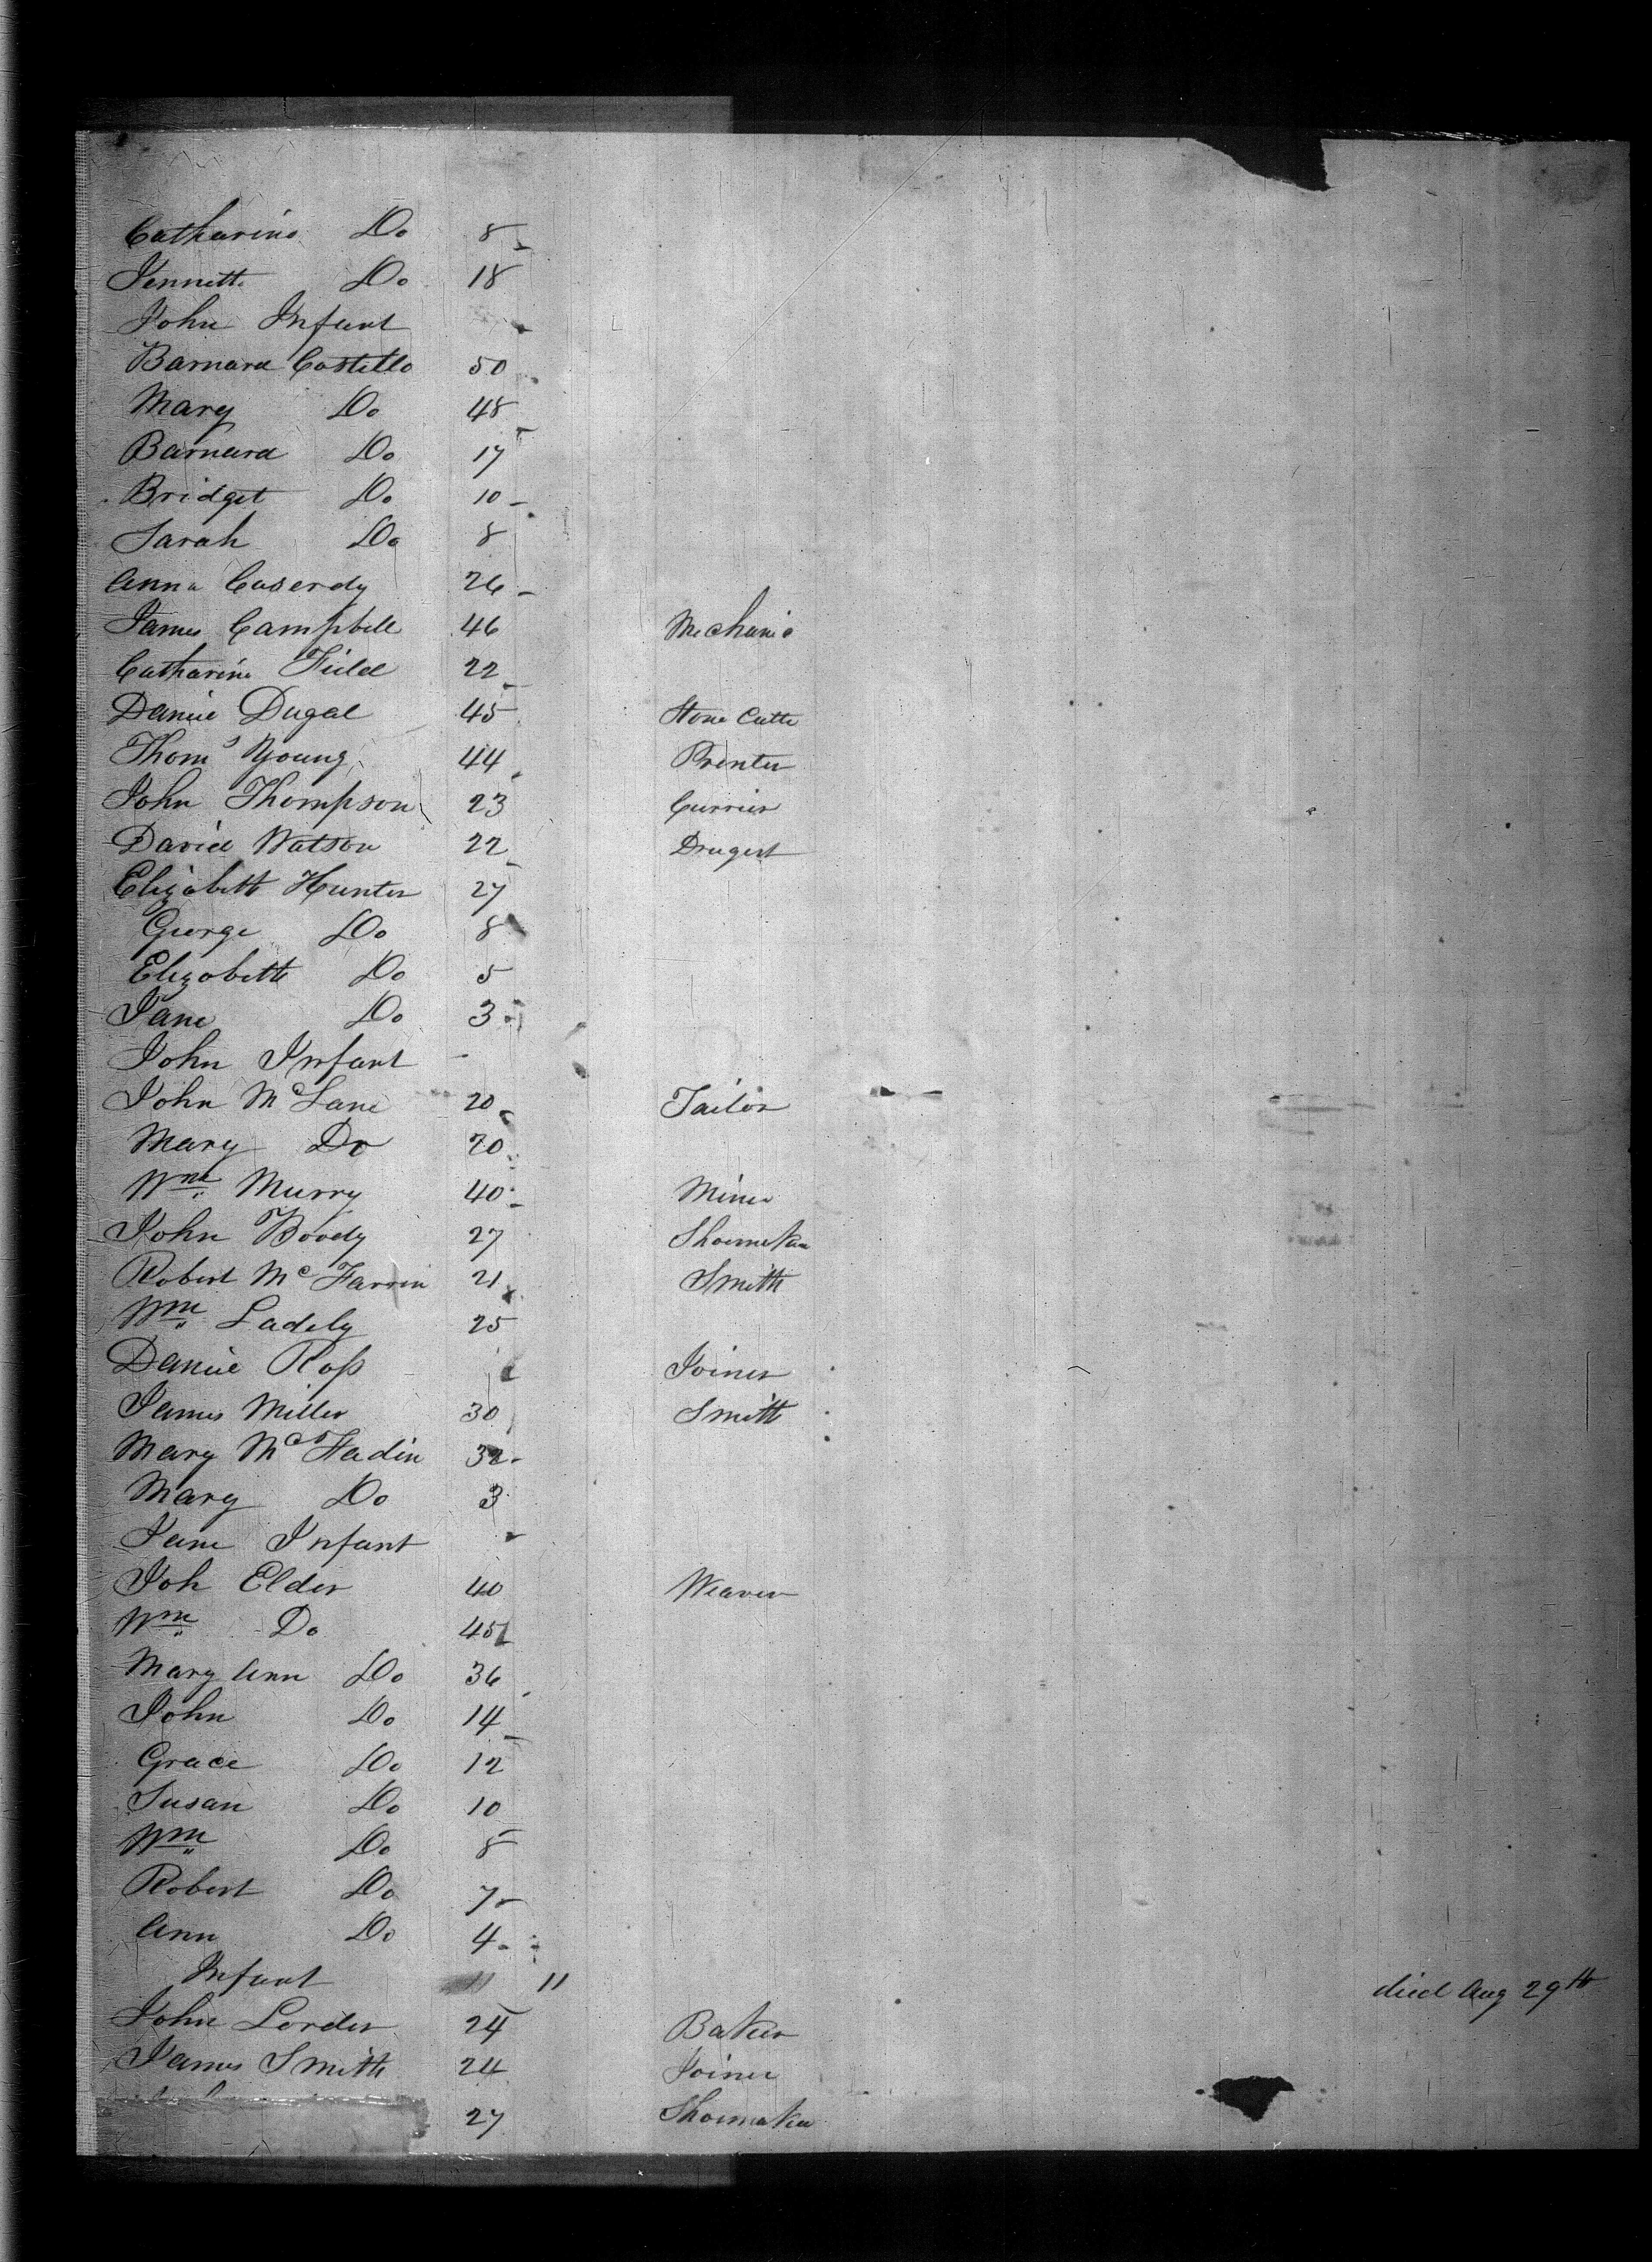 Catharine Do 8
Jennett Do 18
John Infant
Barnard Costillo 50
Mary Do 48
Barnard Do 17
Bridget Do 10
Sarah Do 8
Anna Caserdy 26
James Campbell 46 Mechanic
Catharine Field 22
Daniel Dugal 45 Stone Cutter
Thom^s Young 44 Printer
John Thompson 23 Currier
David Watson 22 Drugest
Elizabeth Hunter 27
George Do 8
Elizabeth Do 5
Jane Do 3
John Infant -
John McLane 20 Tailor
Mary Do 20
Wm Murry 40 Miner
John Boody 27 Shoemaker
Robert McFarrin 21 Smith
Wm Ladely 25
Daniel Ross Joiner
James Miller 30 Smith
Mary McFadin 32
Mary Do 3
Jane Infant
Joh Elder 40 Weaver
Wm Do 45
Mary Ann Do 36
John Do 14
Grace Do 12
Susan Do 10
Wm Do 8
Robert Do 7
Ann Do 4
Infant 11 11 died Aug 29th
John Lorder 24 Baker
James Smith 24 Joiner
27 Shoemaker